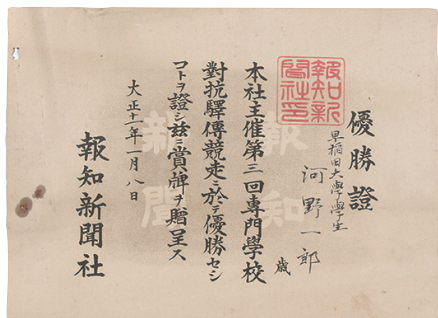 優勝證
早稲田大學學生
河野一郎
歳
本社主催第三回專門學校
對抗驛傳競走ニ於テ優勝セシ
コトヲ證シ玆ニ賞牌ヲ贈呈ス
大正十一年一月八日
報知新聞社
報知新聞社印
報知新聞